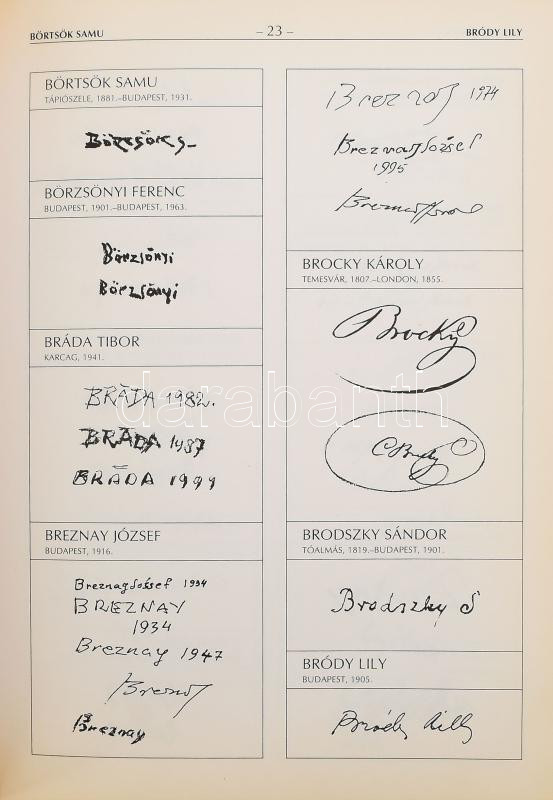 BÖRTSÖK SAMU
– 23 –
BRÓDY LILY
BÖRTSÖK SAMU
TÁPIÓSZELE, 1881.–BUDAPEST, 1931.
BÖRZSÖNYI FERENC
BUDAPEST, 1901.–BUDAPEST, 1963.
Börzsönyi
Börzsönyi
BRÁDA TIBOR
KARCAG, 1941.
BRÁDA 1982.
BRÁDA 1987
BRÁDA 1991
BREZNAY JÓZSEF
BUDAPEST, 1916.
Breznay József 1934
BREZNAY
1934
Breznay 1947
Breznay
Breznay 1974
Breznay József
1995
BROCKY KÁROLY
TEMESVÁR, 1807.–LONDON, 1855.
Brocky
C Brocky
BRODSZKY SÁNDOR
TÓALMÁS, 1819.–BUDAPEST, 1901.
Brodszky S
BRÓDY LILY
BUDAPEST, 1905.
Bródy Lilly
darabanth